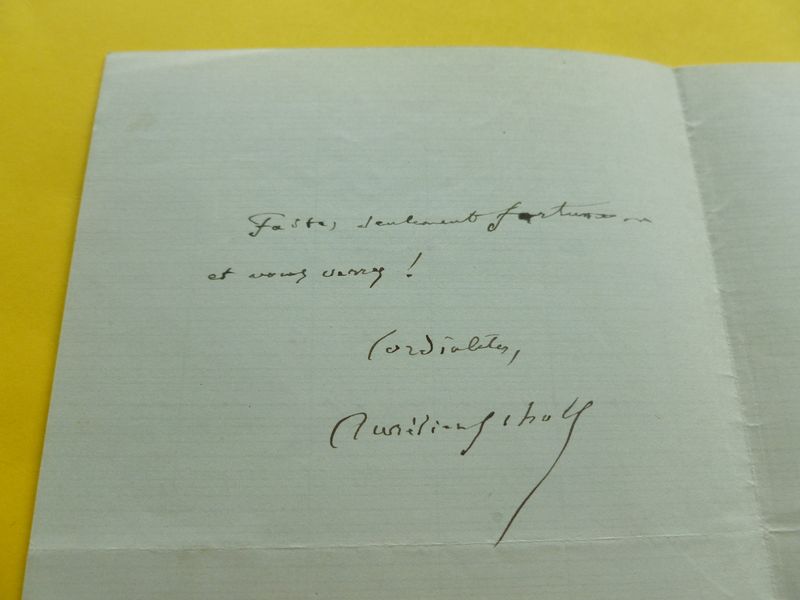 Faites seulement fortune
et vous verrez !
Cordialités,
Aurélien Scholl